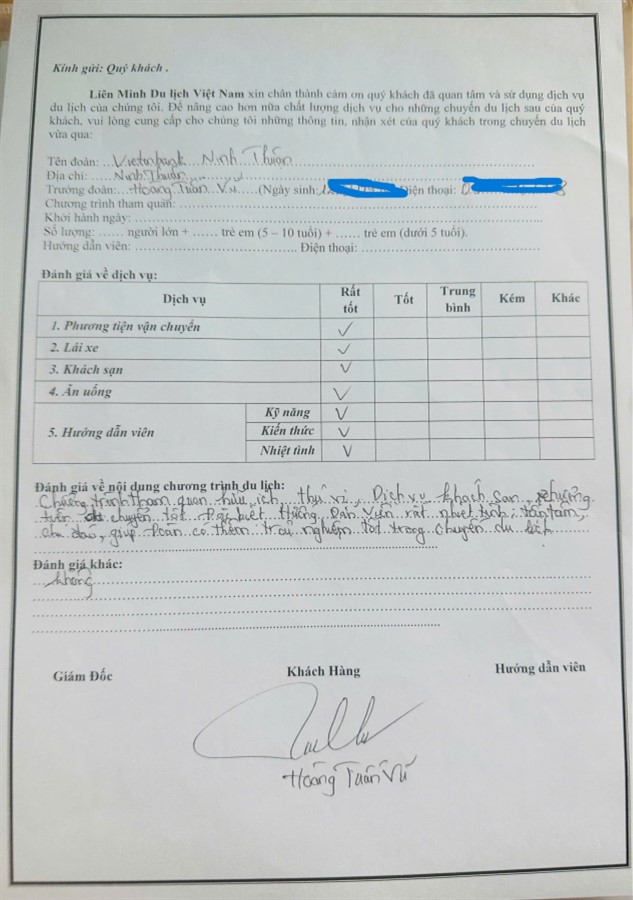 Kính gửi: Quý khách .
Liên Minh Du lịch Việt Nam xin chân thành cảm ơn quý khách đã quan tâm và sử dụng dịch vụ
du lịch của chúng tôi. Để nâng cao hơn nữa chất lượng dịch vụ cho những chuyến du lịch sau của quý
khách, vui lòng cung cấp cho chúng tôi những thông tin, nhận xét của quý khách trong chuyến du lịch
vừa qua:
Tên đoàn: Vietinbank Ninh Thuận
Địa chỉ: Ninh Thuận
Trưởng đoàn: Hoàng Tuấn Vũ (Ngày sinh: Điện thoại:
Chương trình tham quan:
Khởi hành ngày:
Số lượng: ...... người lớn + ...... trẻ em (5 – 10 tuổi) + ...... trẻ em (dưới 5 tuổi).
Hướng dẫn viên: Điện thoại:
Đánh giá về dịch vụ:
Dịch vụ Rất tốt Tốt Trung bình Kém Khác
1. Phương tiện vận chuyển ✓
2. Lái xe ✓
3. Khách sạn ✓
4. Ăn uống ✓
5. Hướng dẫn viên Kỹ năng ✓
Kiến thức ✓
Nhiệt tình ✓
Đánh giá về nội dung chương trình du lịch:
Chương trình tham quan hữu ích, thú vị, Dịch vụ khách sạn, phương
tiện chuyển tốt. Đặc biệt Hướng Dẫn Viên rất nhiệt tình, tận tâm,
chu đáo, giúp Đoàn có thêm trải nghiệm tốt trong chuyến du lịch
Đánh giá khác:
không
Giám Đốc Khách Hàng Hướng dẫn viên
Hoàng Tuấn Vũ